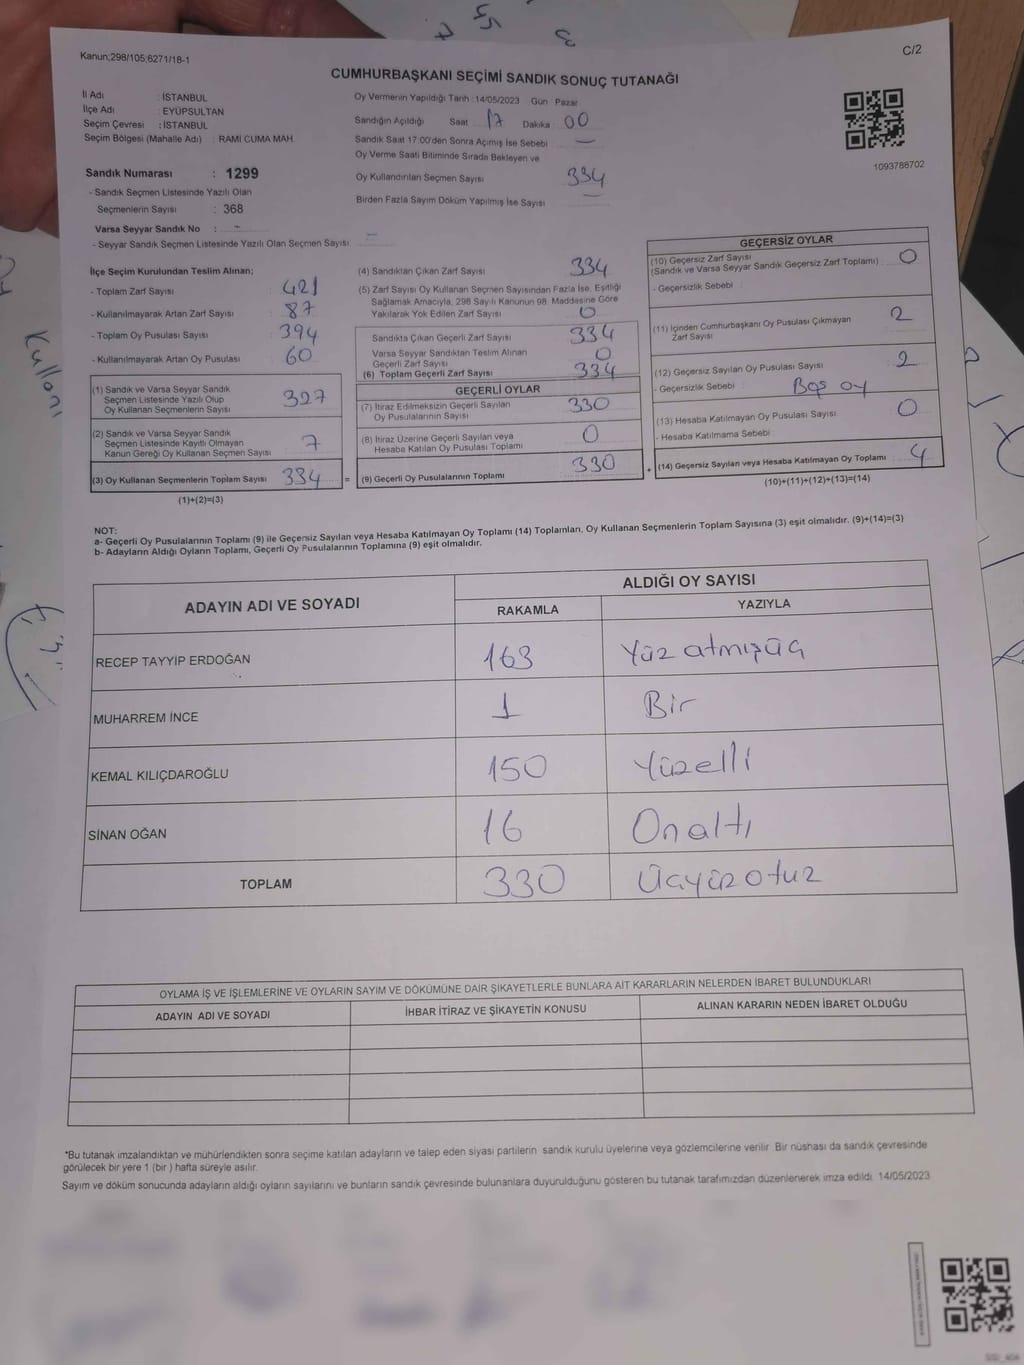 Kanun;298/105;6271/18-1
C/2
CUMHURBAŞKANI SEÇİMİ SANDIK SONUÇ TUTANAĞI
İl Adı : İSTANBUL
İlçe Adı : EYÜPSULTAN
Seçim Çevresi : İSTANBUL
Seçim Bölgesi (Mahalle Adı) : RAMİ CUMA MAH.
Sandık Numarası : 1299
- Sandık Seçmen Listesinde Yazılı Olan
Seçmenlerin Sayısı : 368
Varsa Seyyar Sandık No : -
- Seyyar Sandık Seçmen Listesinde Yazılı Olan Seçmen Sayısı : -
Oy Vermenin Yapıldığı Tarih : 14/05/2023 Gün Pazar
Sandığın Açıldığı Saat 17 Dakika 00
Sandık Saat 17:00'den Sonra Açımış İse Sebebi -
Oy Verme Saati Bitiminde Sırada Bekleyen ve
Oy Kullandırılan Seçmen Sayısı 334
Birden Fazla Sayım Döküm Yapılmış İse Sayısı -
1093788702
İlçe Seçim Kurulundan Teslim Alınan;
- Toplam Zarf Sayısı : 421
- Kullanılmayarak Artan Zarf Sayısı : 87
- Toplam Oy Pusulası Sayısı : 394
- Kullanılmayarak Artan Oy Pusulası : 60
(1) Sandık ve Varsa Seyyar Sandık
Seçmen Listesinde Yazılı Olup
Oy Kullanan Seçmenlerin Sayısı 327
(2) Sandık ve Varsa Seyyar Sandık
Seçmen Listesinde Kayıtlı Olmayan
Kanun Gereği Oy Kullanan Seçmen Sayısı 7
(3) Oy Kullanan Seçmenlerin Toplam Sayısı 334 =
(1)+(2)=(3)
(4) Sandıktan Çıkan Zarf Sayısı 334
(5) Zarf Sayısı Oy Kullanan Seçmen Sayısından Fazla İse, Eşitliği
Sağlamak Amacıyla, 298 Sayılı Kanunun 98. Maddesine Göre
Yakılarak Yok Edilen Zarf Sayısı 0
Sandıkta Çıkan Geçerli Zarf Sayısı 334
Varsa Seyyar Sandıktan Teslim Alınan
Geçerli Zarf Sayısı 0
(6) Toplam Geçerli Zarf Sayısı 334
GEÇERLİ OYLAR
(7) İtiraz Edilmeksizin Geçerli Sayılan
Oy Pusulalarının Sayısı 330
(8) İtiraz Üzerine Geçerli Sayılan veya
Hesaba Katılan Oy Pusulası Toplamı 0
(9) Geçerli Oy Pusulalarının Toplamı 330 +
GEÇERSİZ OYLAR
(10) Geçersiz Zarf Sayısı
(Sandık ve Varsa Seyyar Sandık Geçersiz Zarf Toplamı) : 0
- Geçersizlik Sebebi :
(11) İçinden Cumhurbaşkanı Oy Pusulası Çıkmayan
Zarf Sayısı 2
(12) Geçersiz Sayılan Oy Pusulası Sayısı 2
- Geçersizlik Sebebi : Boş oy
(13) Hesaba Katılmayan Oy Pusulası Sayısı 0
- Hesaba Katılmama Sebebi
(14) Geçersiz Sayılan veya Hesaba Katılmayan Oy Toplamı 4
(10)+(11)+(12)+(13)=(14)
NOT:
a- Geçerli Oy Pusulalarının Toplamı (9) ile Geçersiz Sayılan veya Hesaba Katılmayan Oy Toplamı (14) Toplamları, Oy Kullanan Seçmenlerin Toplam Sayısına (3) eşit olmalıdır. (9)+(14)=(3)
b- Adayların Aldığı Oyların Toplamı, Geçerli Oy Pusulalarının Toplamına (9) eşit olmalıdır.
ADAYIN ADI VE SOYADI
ALDIĞI OY SAYISI
RAKAMLA YAZIYLA
RECEP TAYYİP ERDOĞAN 163 Yüz atmışüç
MUHARREM İNCE 1 Bir
KEMAL KILIÇDAROĞLU 150 Yüzelli
SİNAN OĞAN 16 Onaltı
TOPLAM 330 Üçyüzotuz
OYLAMA İŞ VE İŞLEMLERİNE VE OYLARIN SAYIM VE DÖKÜMÜNE DAİR ŞİKAYETLERLE BUNLARA AİT KARARLARIN NELERDEN İBARET BULUNDUKLARI
ADAYIN ADI VE SOYADI İHBAR İTİRAZ VE ŞİKAYETİN KONUSU ALINAN KARARIN NEDEN İBARET OLDUĞU
*Bu tutanak imzalandıktan ve mühürlendikten sonra seçime katılan adayların ve talep eden siyasi partilerin sandık kurulu üyelerine veya gözlemcilerine verilir. Bir nüshası da sandık çevresinde
görülecek bir yere 1 (bir ) hafta süreyle asılır.
Sayım ve döküm sonucunda adayların aldığı oyların sayılarını ve bunların sandık çevresinde bulunanlara duyurulduğunu gösteren bu tutanak tarafımızdan düzenlenerek imza edildi. 14/05/2023
Kullanı